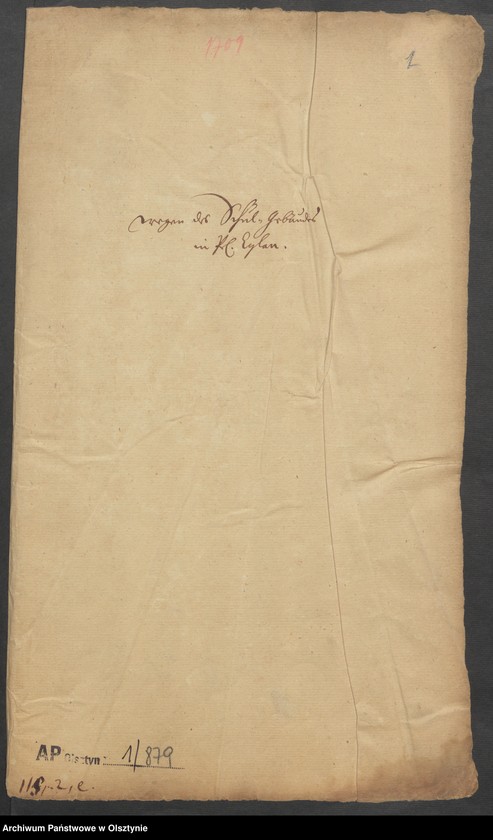 1709
1
wegen des Schul-Gebäudes
in Pr. Eylau.
AP Olsztyn 1/879
Archiwum Państwowe w Olsztynie